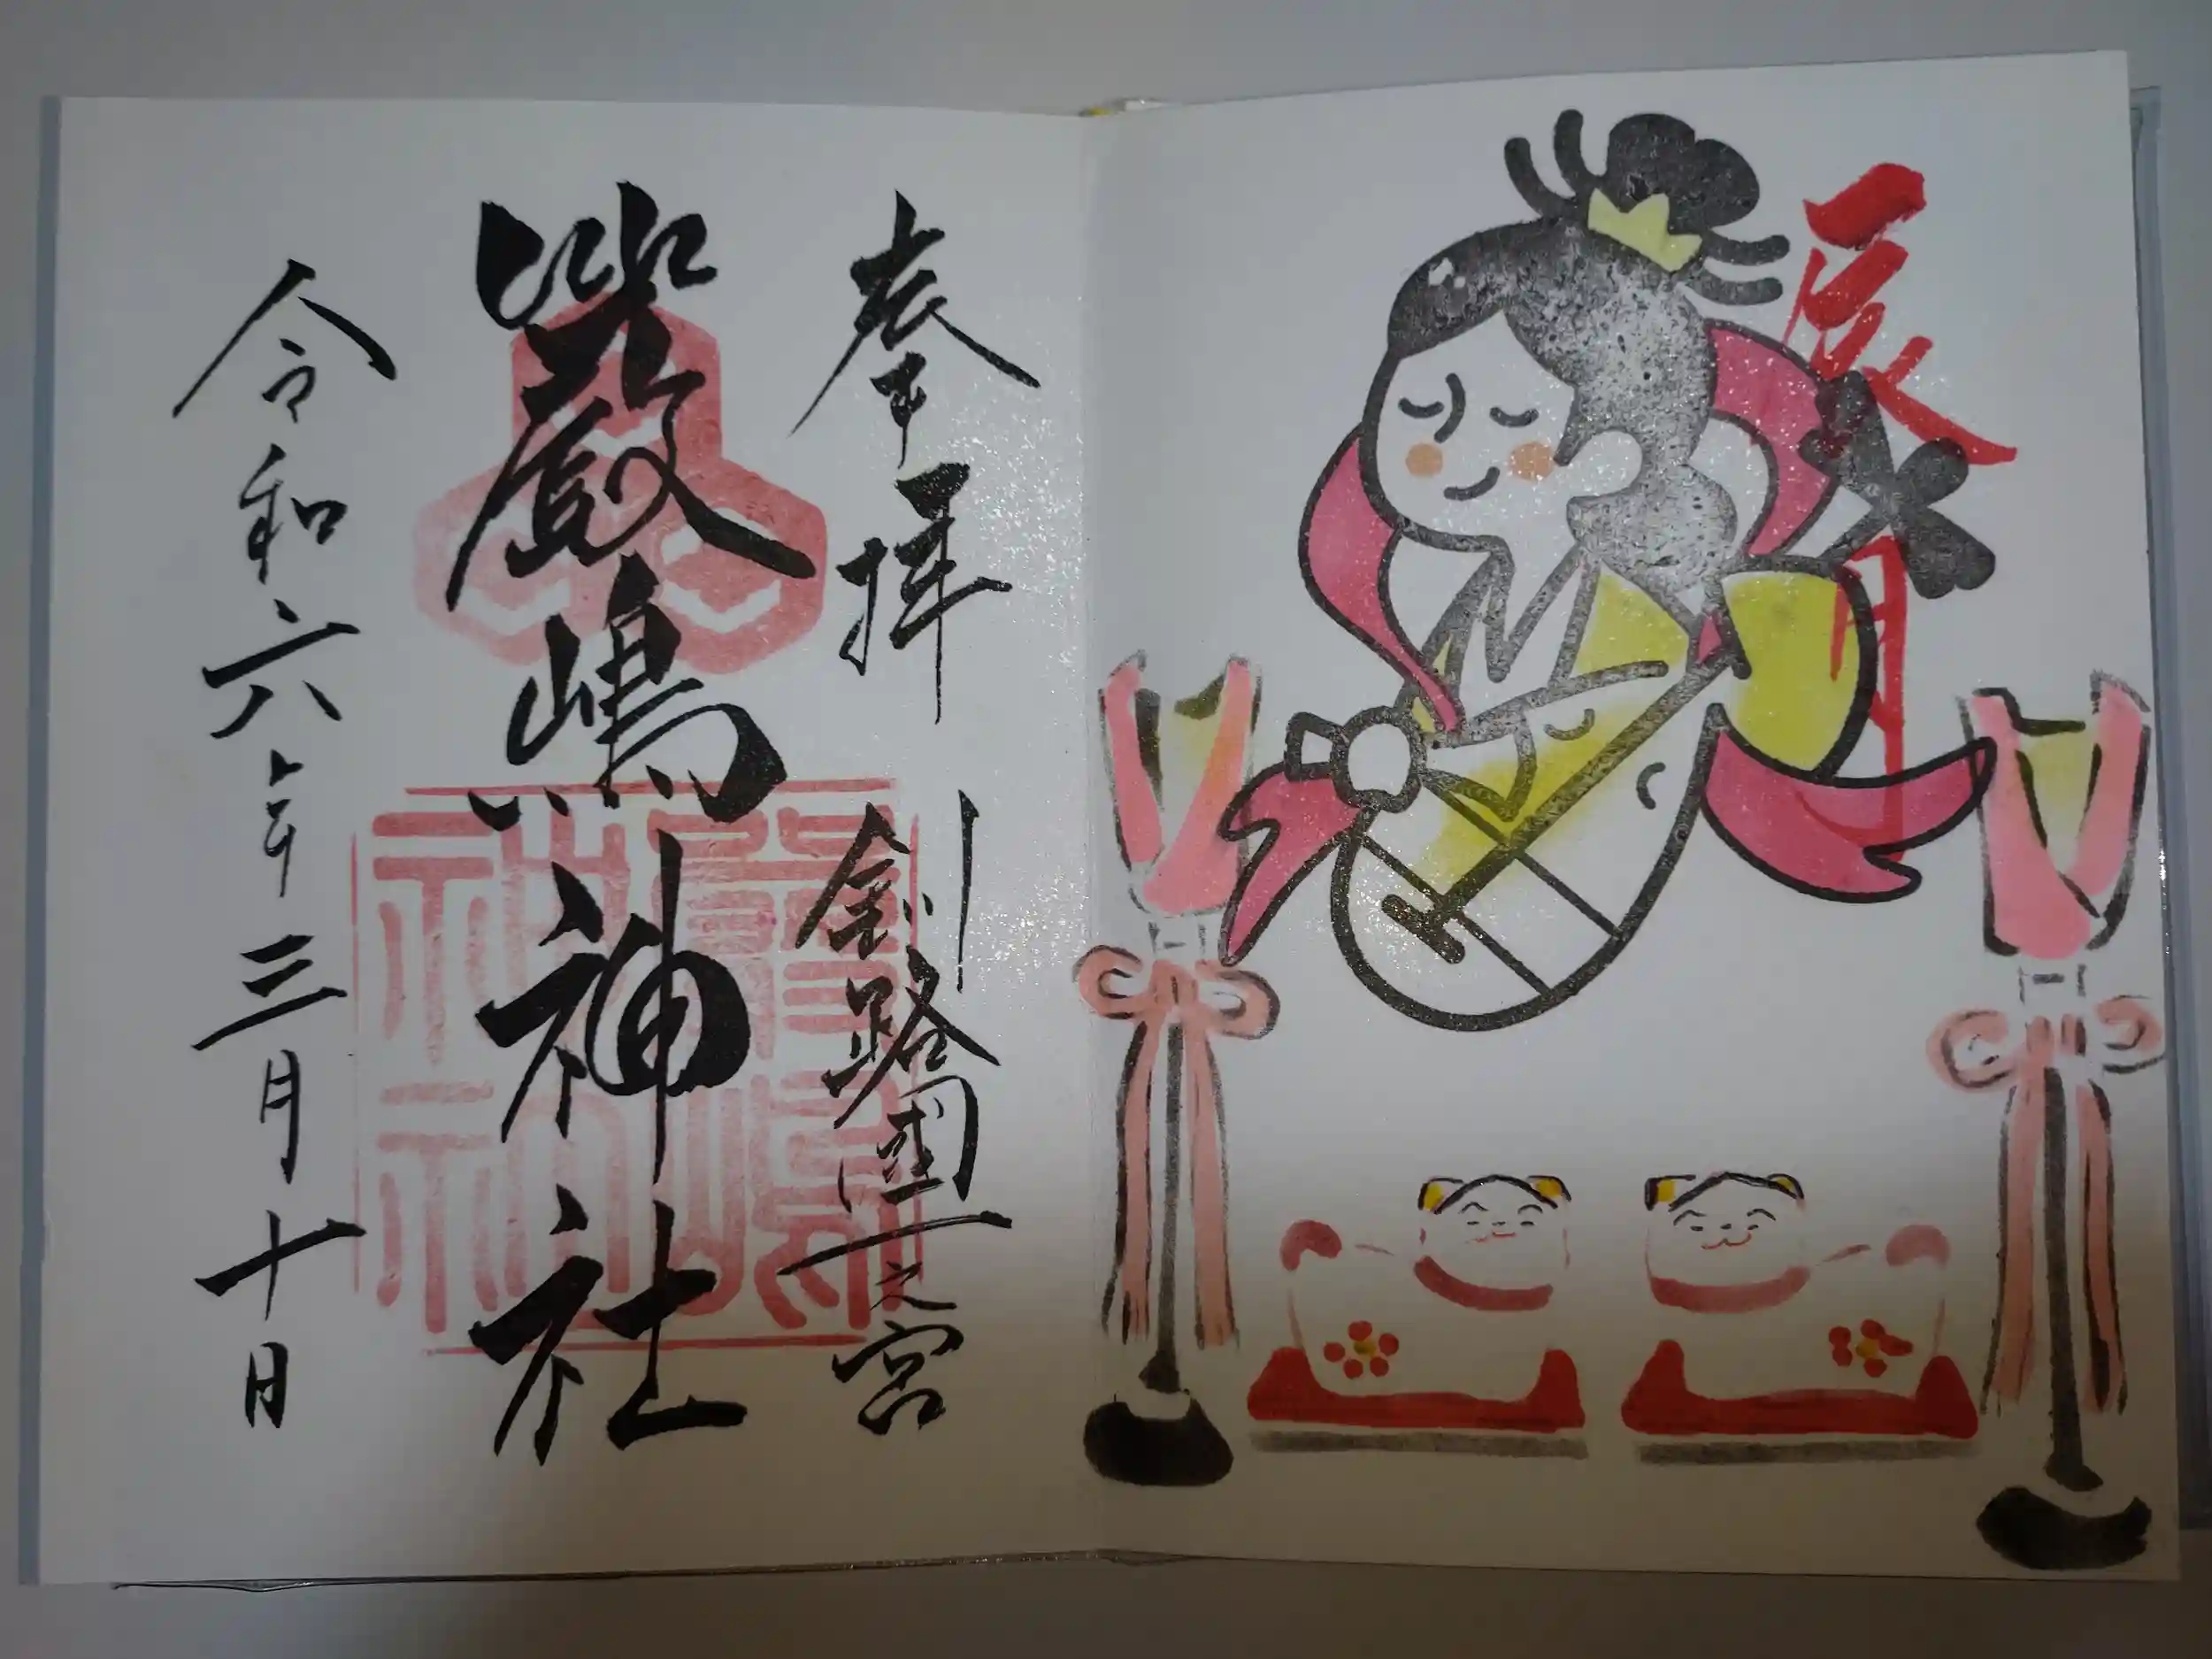 辰月
奉拝 釧路國一之宮
嚴嶋神社
嚴嶋神社
令和六年三月十日